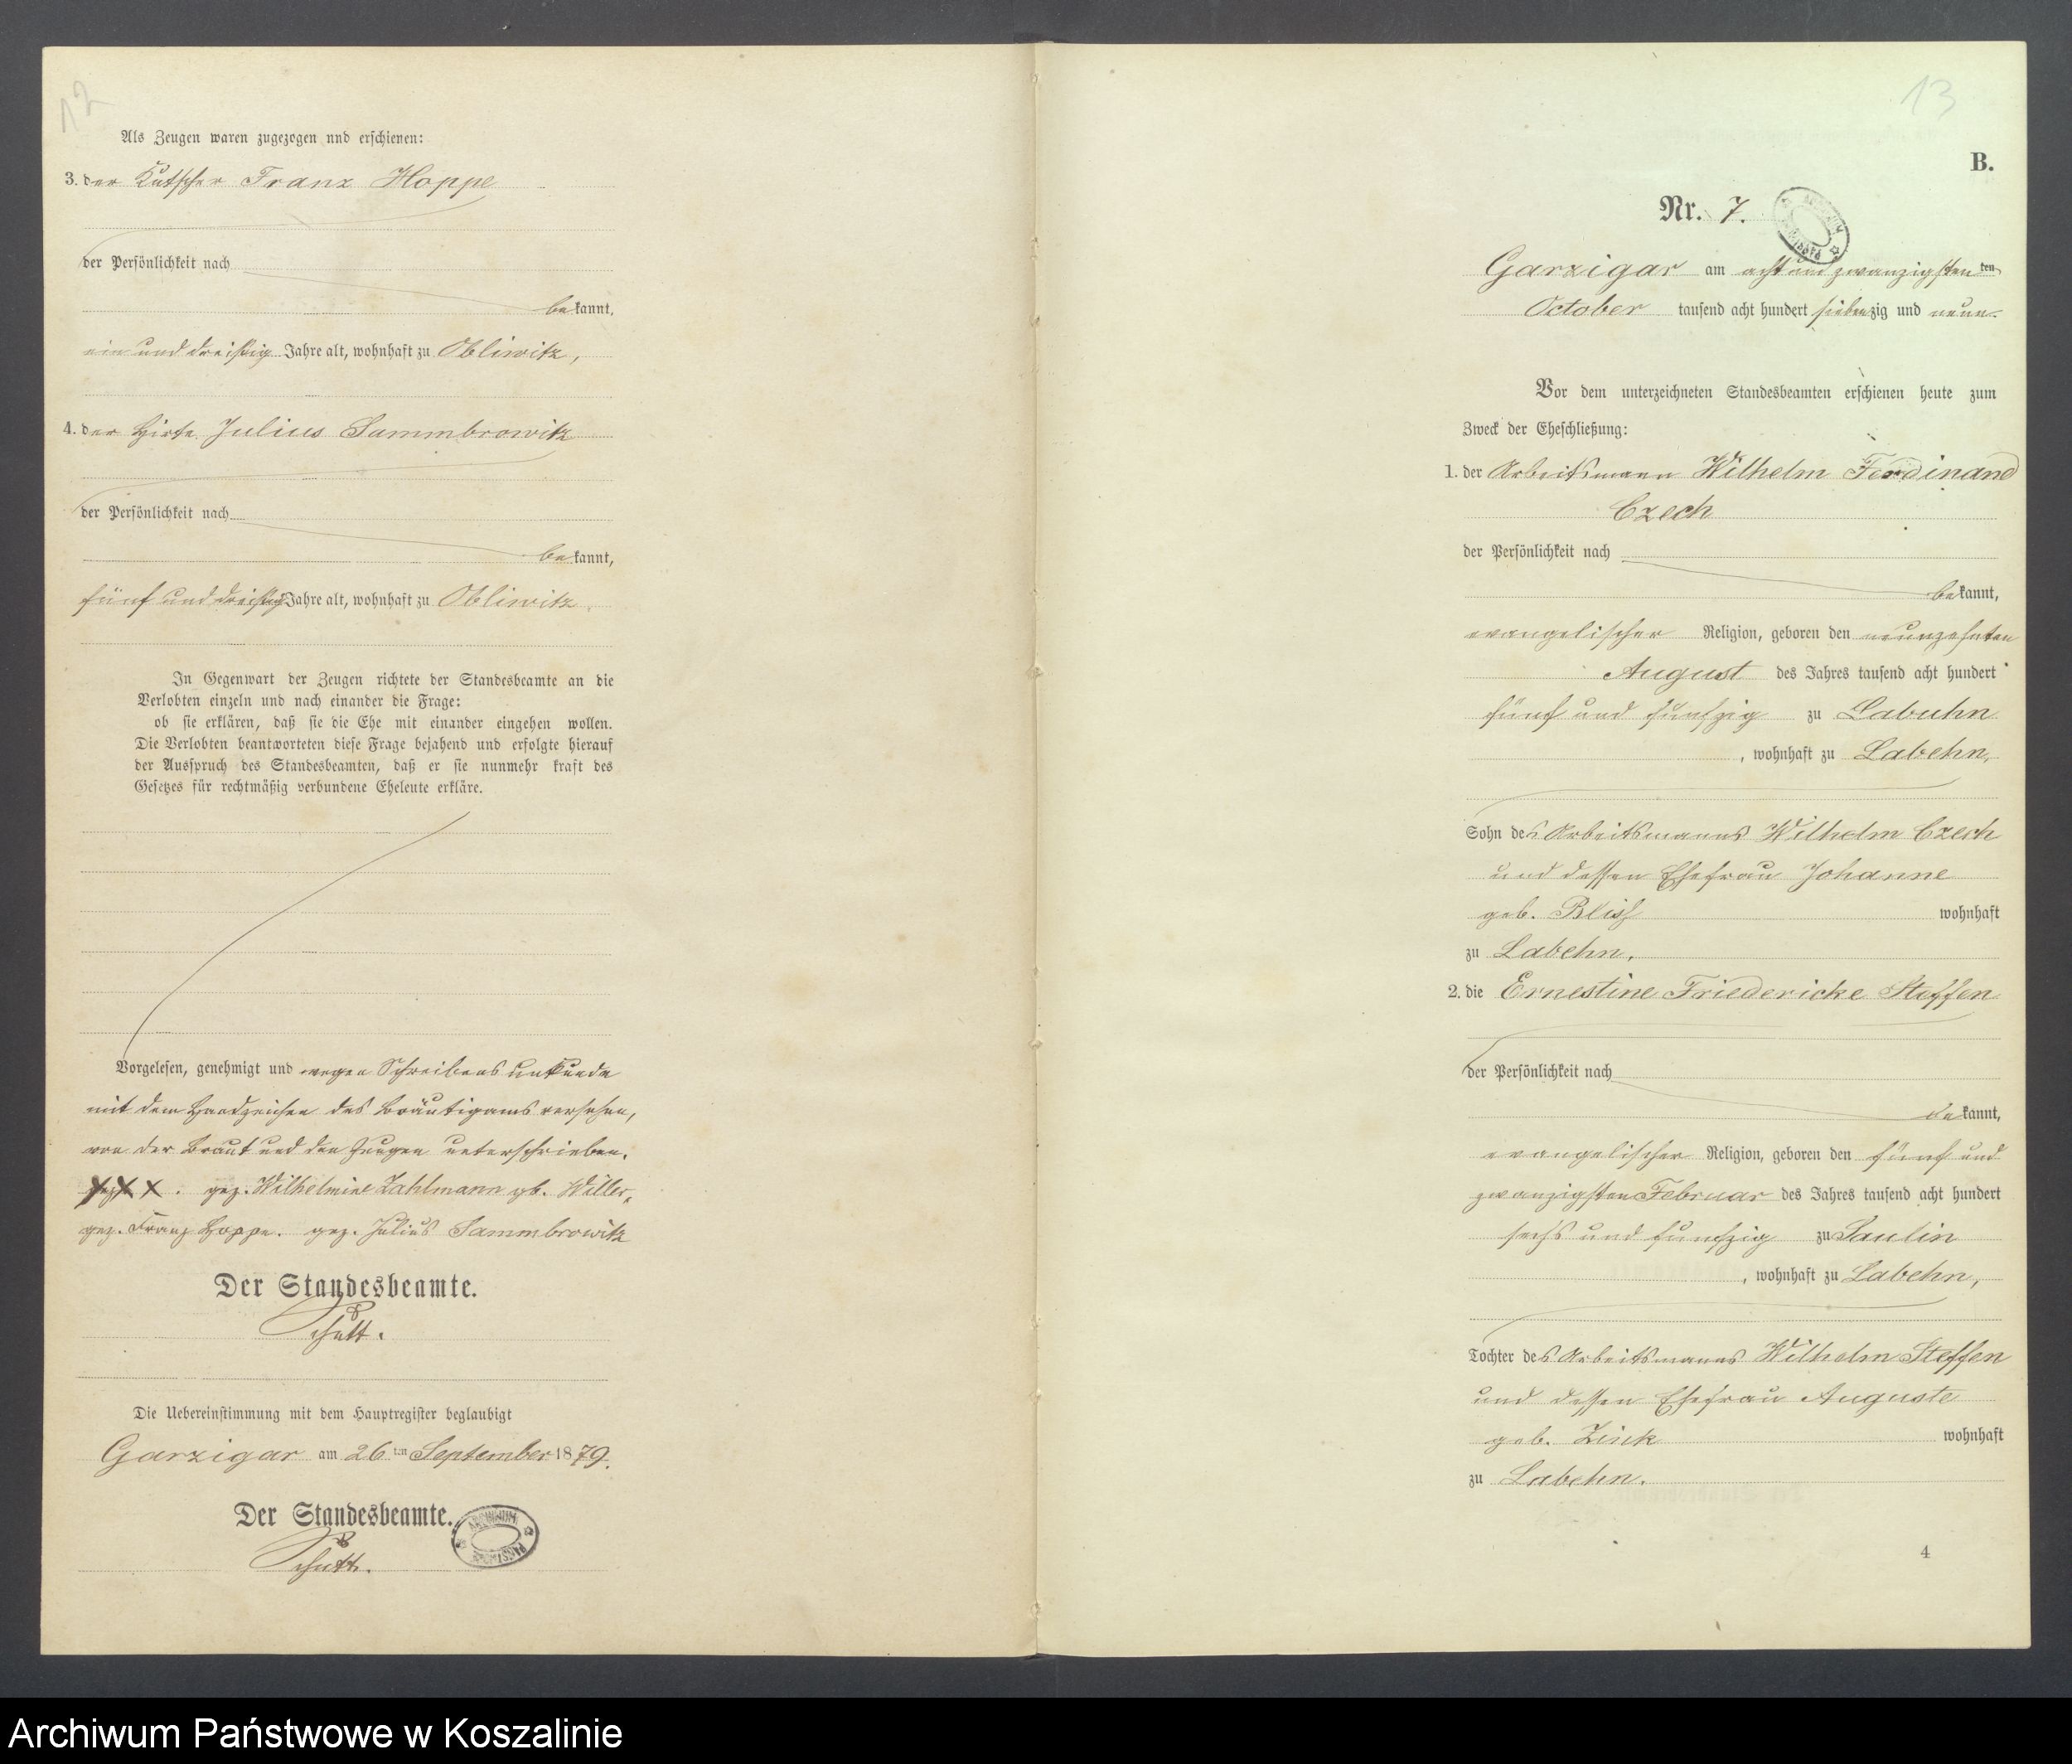 12
Als Zeugen waren zugezogen und erschienen:
3. der Kutscher Franz Hoppe
der Persönlichkeit nach
bekannt,
ein und dreißig Jahre alt, wohnhaft zu Obliwitz,
4. der Hirte Julius Sammbrowitz
der Persönlichkeit nach
bekannt,
fünf und dreißig Jahre alt, wohnhaft zu Obliwitz.
In Gegenwart der Zeugen richtete der Standesbeamte an die
Verlobten einzeln und nach einander die Frage:
ob sie erklären, daß sie die Ehe mit einander eingehen wollen.
Die Verlobten beantworteten diese Frage bejahend und erfolgte hierauf
der Ausspruch des Standesbeamten, daß er sie nunmehr kraft des
Gesetzes für rechtmäßig verbundene Eheleute erkläre.
Vorgelesen, genehmigt und wegen Schreibensunkunde
mit dem Handzeichen des Bräutigams versehen,
von der Braut und den Zeugen unterschrieben.
XXX. gez. Wilhelmine Zahlmann gb. Willer,
gez. Franz Hoppe. gez. Julius Sammbrowitz
Der Standesbeamte.
Schutt.
Die Uebereinstimmung mit dem Hauptregister beglaubigt
Garzigar am 26ten September 1879.
Der Standesbeamte.
Schutt.
13
B.
Nr. 7.
Garzigar am acht und zwanzigsten ten
October tausend acht hundert siebenzig und neun.
Vor dem unterzeichneten Standesbeamten erschienen heute zum
Zweck der Eheschließung:
1. der Arbeitsmann Wilhelm Ferdinand
Czech
der Persönlichkeit nach
bekannt,
evangelischer Religion, geboren den neunzehnten
August des Jahres tausend acht hundert
fünf und fünfzig zu Labuhn
, wohnhaft zu Labehn,
Sohn des Arbeitsmanns Wilhelm Czech
und dessen Ehefrau Johanne
geb. Bliß wohnhaft
zu Labehn.
2. die Ernestine Friedericke Steffen
der Persönlichkeit nach
bekannt,
evangelischer Religion, geboren den fünf und
zwanzigsten Februar des Jahres tausend acht hundert
sechs und fünfzig zu Saulin
, wohnhaft zu Labehn,
Tochter des Arbeitsmanns Wilhelm Steffen
und dessen Ehefrau Auguste
geb. Zink wohnhaft
zu Labehn.
4
Archiwum Państwowe w Koszalinie